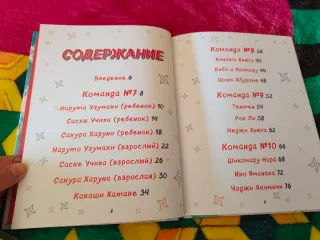 СОДЕРЖАНИЕ
Введение 6
Команда №7 8
Наруто Узумаки (ребенок) 10
Саске Учиха (ребенок) 14
Сакура Харуно (ребенок) 18
Наруто Узумаки (взрослый) 22
Саске Учиха (взрослый) 26
Сакура Харуно (взрослая) 30
Какаши Хатаке 34
2
Команда №8 38
Хината Хьюга 40
Киба и Акамару 44
Шино Абураме 48
Команда №9 52
Тентен 54
Рок Ли 58
Неджи Хьюга 62
Команда №10 66
Шикамару Нара 68
Ино Яманака 72
Чоджи Акимичи 76